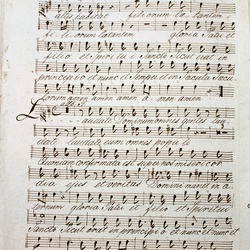 filiorum lætantem
filiorum lætantem gloria Patri et
filio et Spiritui Sancto Sicut erat in
principio et nunc et Semper et in Sæcula Sæcu
lorum amen amen amen a men amen
Laudate Dominum omnes gentes lau
date laudate eum omnes populi
confirmata est super nos misericor
dia ejus et veritas Domini manet in æ
ternum gloria Patri et filio et Spiritui
Sancto Sicut erat in principio et nunc et nunc et